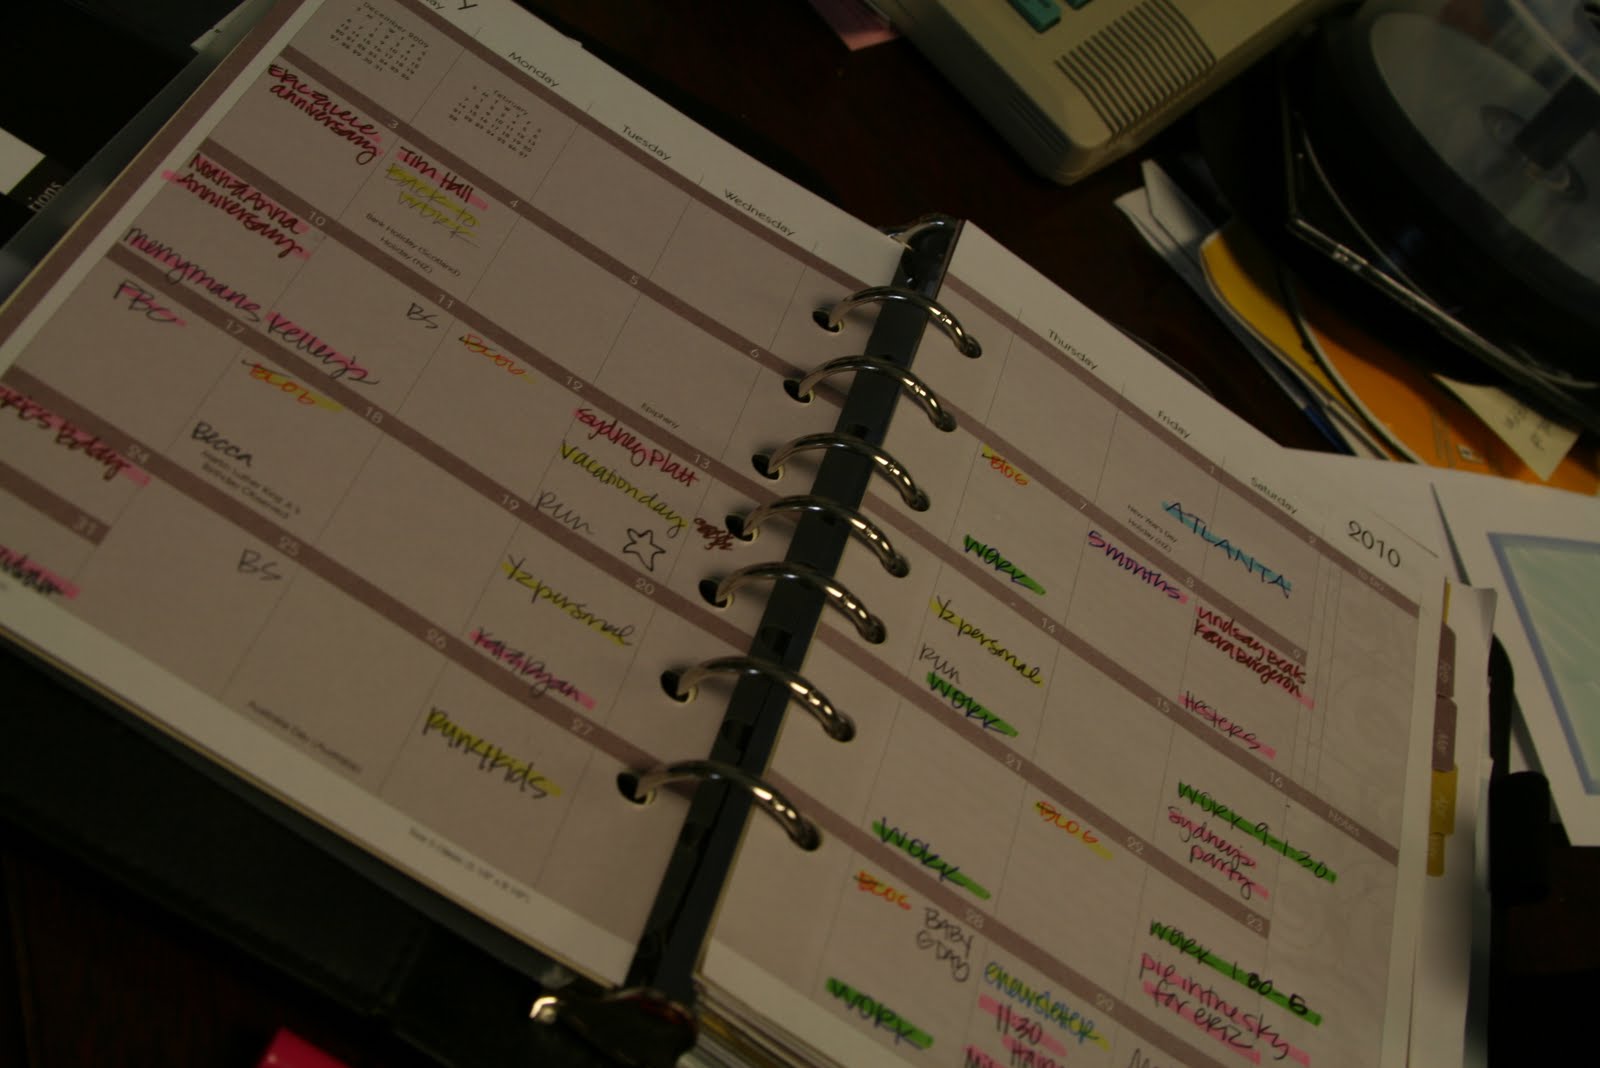 Monday
Tuesday
Wednesday
Thursday
Friday
Saturday
2010
December 2009
February
anniversary
3
Tim Hall
BACK TO
WORK
Bank Holiday (Scotland)
Holiday (NZ)
4
5
6
Epiphany
BLOG
7
1
New Year's Day
Holiday (NZ)
ATLANTA
2
8
5 months
9
Lindsay Beals
Kara Burgeron
Anniversary
10
BS
11
BLOG
12
Sydney Platt
vacation day
13
WORK
14
15
Hesters
16
Notes
merrymans
Kelley's
FBC
17
BLOG
Becca
18
19
RUN
20
1/2 personal
RUN
WORK
21
BLOG
22
WORK 9-1:30
Sydney's
party
23
24
BS
25
1/2 personal
26
27
WORK
BLOG
BABY
G DAY
28
enewsletter
11:30
29
WORK 1:00-5
pie in the sky
for ERIZ
31
Australia Day (Australia)
run4kids
WORK
tions